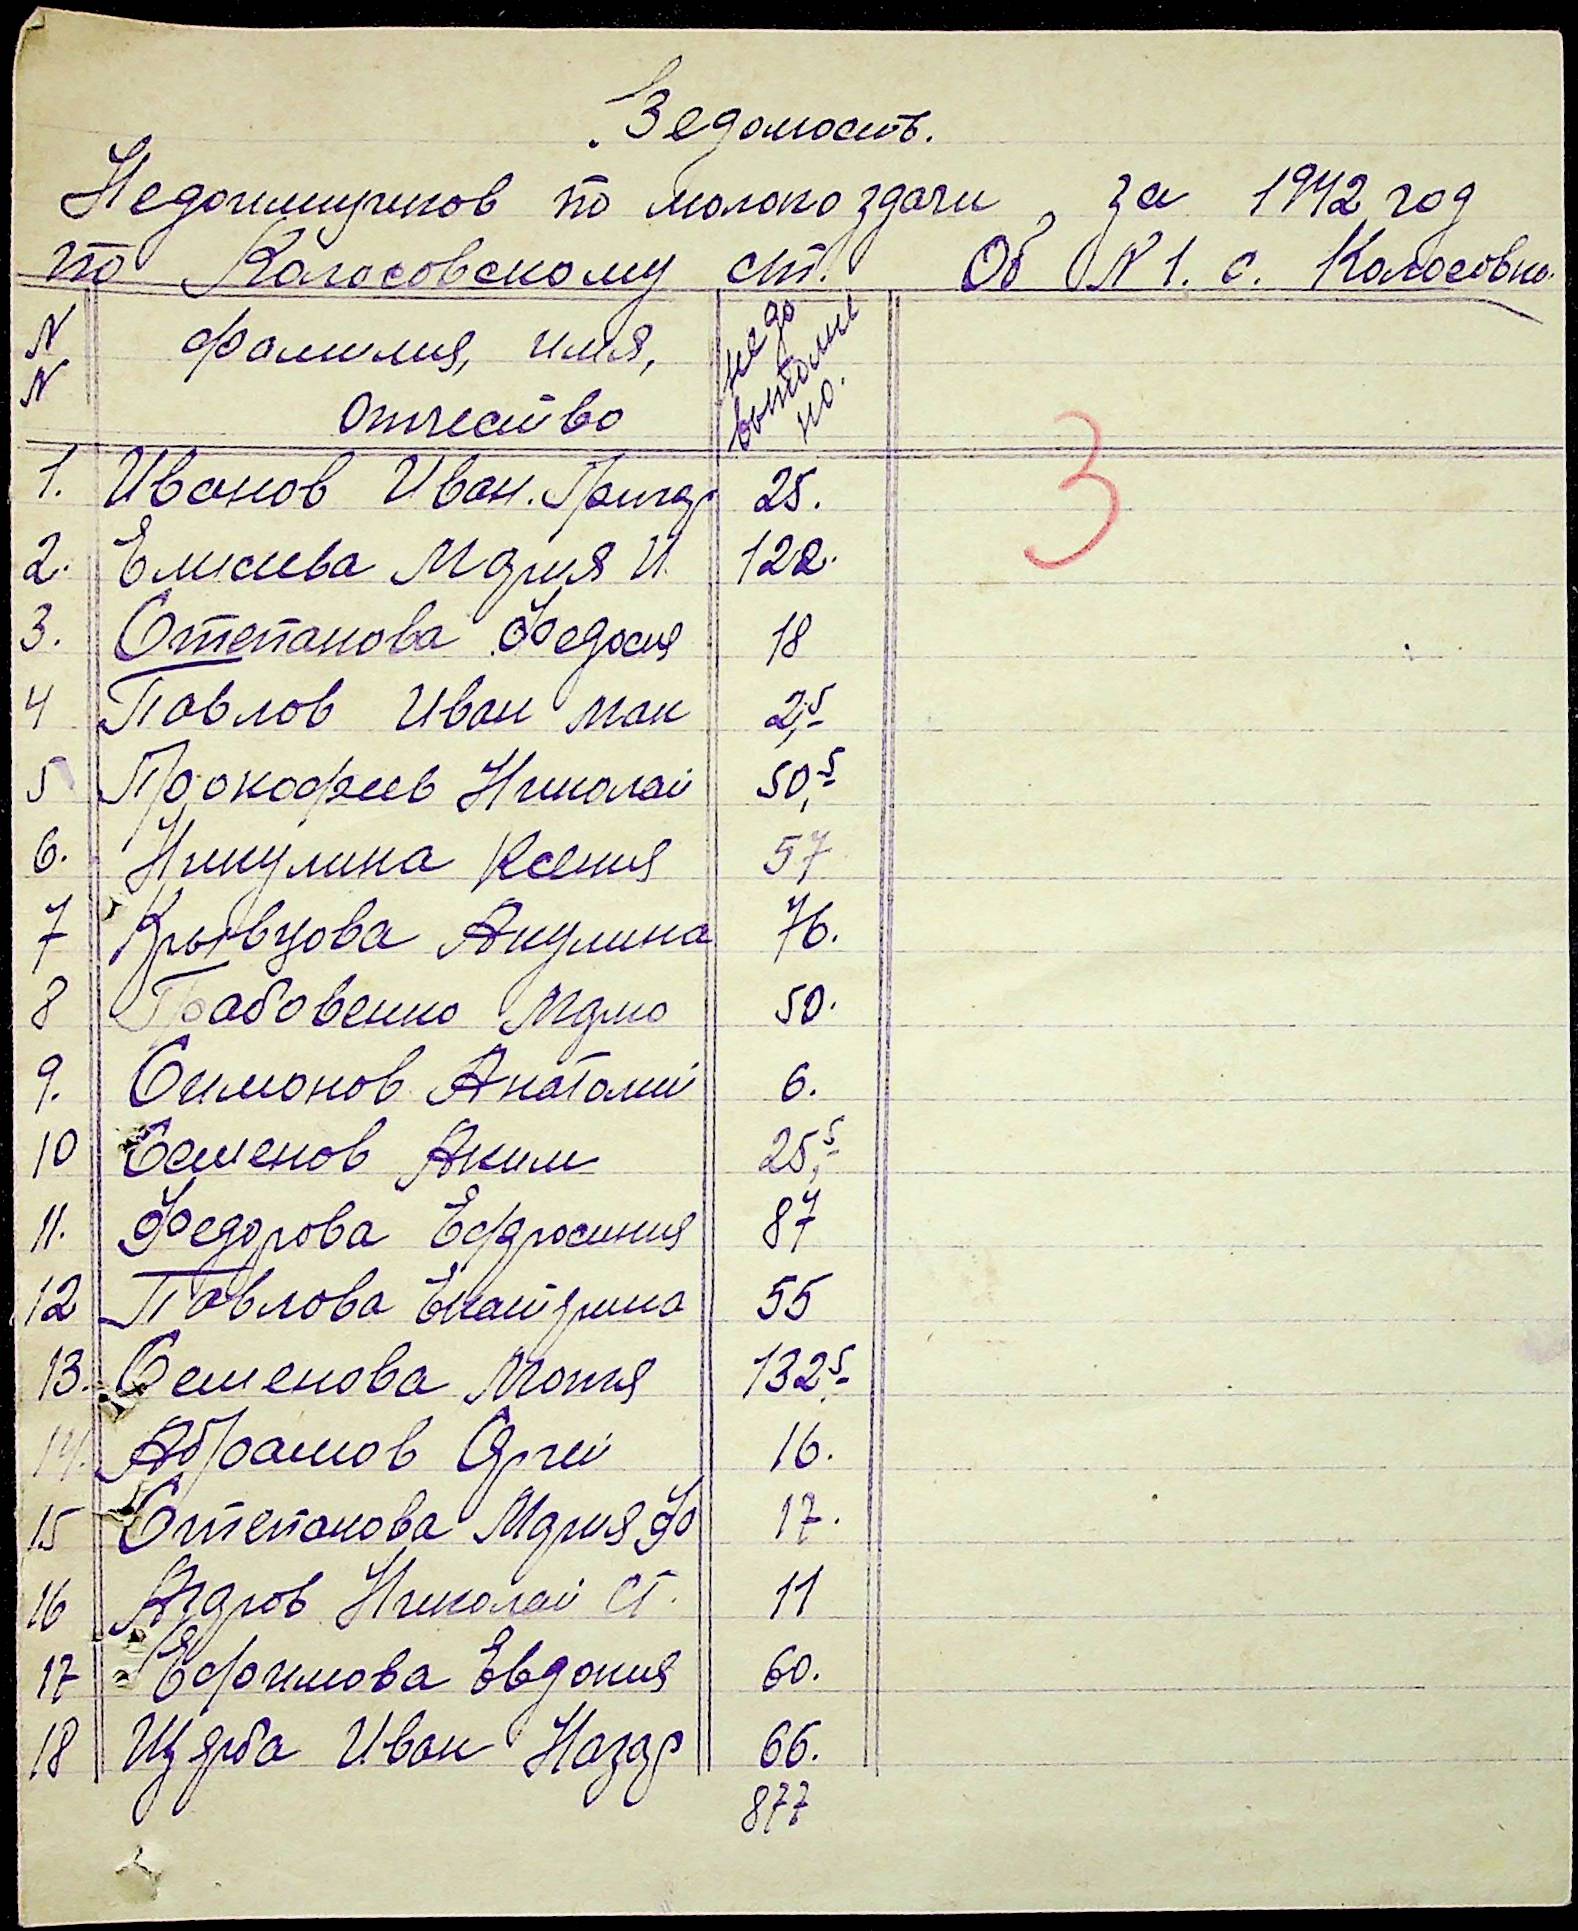 Ведомость.
Недоимщиков по молоко здачи за 1942 год
по Колосовскому с/п. Об N 1. с. Колосовка
N N Фамилия, имя, отчество недо выполне но.
3
1. Иванов Иван. Григор 25.
2. Елисиева Мария И. 122.
3. Степанова Федосия 18
4 Павлов Иван Мак 2,5
5 Прокофьев Николай 50,5
6. Никулина Ксения 57
7 Крывцова Акулина 76.
8 Грабовенко 50.
9. Симонов Анатолий 6.
10 Семенов Аким 25,5
11. Федорова Ефросиния 87
12 Павлова Екатрина 55
13. Семенова Мотия 132,5
14. Абрамов Сргей 16.
15 Степанова Мария Ф 17.
16 Николай Ст. 11
17 Ефимова Евдокия 60.
18 Щярба Иван Назар 66.
877